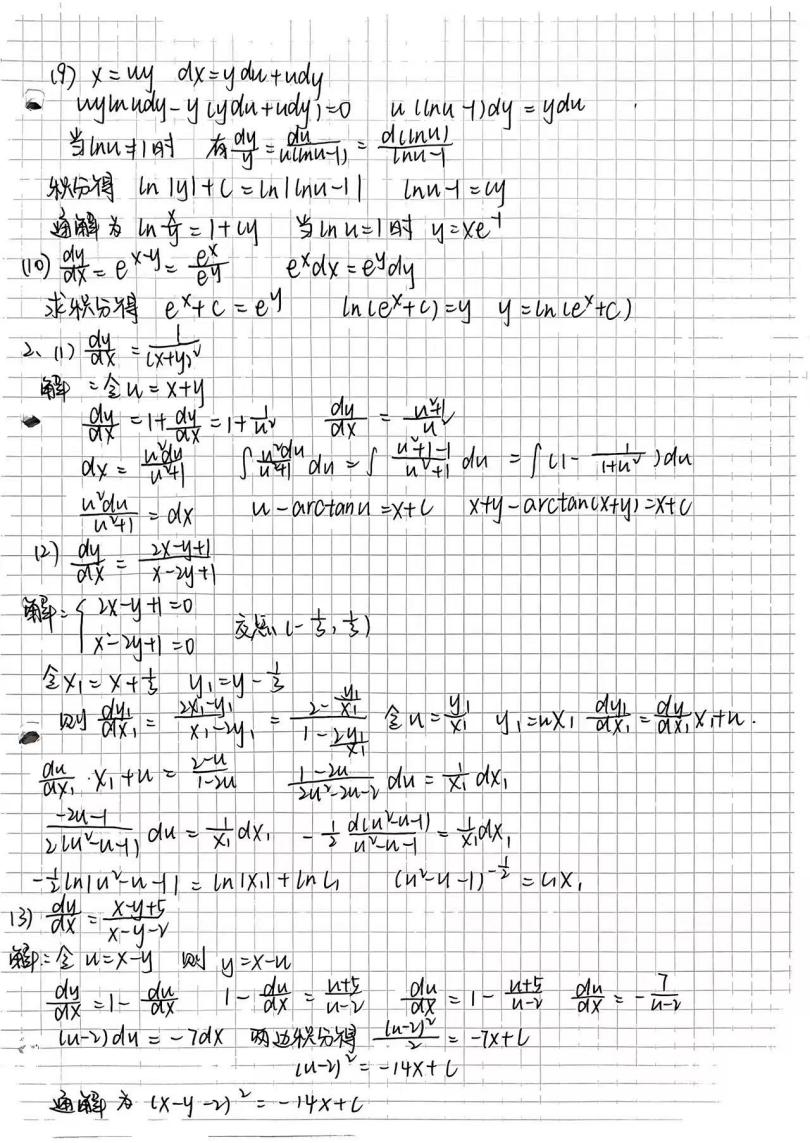 (9) x=uy dx=ydu+udy
uylnudy-y(ydu+udy)=0 u(lnu-1)dy=ydu
当lnu≠1时 有dy/y=du/u(lnu-1)=d(lnu)/lnu-1
积分得 ln|y|+C=ln|lnu-1| lnu-1=cy
通解为 ln x/y=1+cy 当lnu=1时 y=xe^-1
(10) dy/dx=e^x-y=e^x/e^y e^xdx=e^ydy
求积分得 e^x+c=e^y ln(e^x+c)=y y=ln(e^x+c)
2、(1) dy/dx=1/(x+y)²
解:令u=x+y
dy/dx=1+dy/dx=1+1/u² dy/dx=u²+1/u²
dx=u²du/u²+1 ∫u²du/u²+1 du=∫u²+1-1/u²+1 du=∫(1-1/1+u²)du
u²du/u²+1=dx u-arctanu=x+c x+y-arctan(x+y)=x+c
(2) dy/dx=2x-y+1/x-2y+1
解:{2x-y+1=0
x-2y+1=0 交点(-1/3,1/3)
令x₁=x+1/3 y₁=y-1/3
则dy₁/dx₁=2x₁-y₁/x₁-2y₁=2-y₁/x₁/1-2y₁/x₁ 令u=y₁/x₁ y₁=ux₁ dy₁/dx₁=du/dx₁x₁+u.
du/dx₁·x₁+u=2-u/1-2u 1-2u/2u²-2u+2 du=1/x₁dx₁
-2u-1/2(u²-u-1) du=1/x₁dx₁ -1/2 d(u²-u-1)/u²-u-1=1/x₁dx₁
-1/2ln|u²-u-1|=ln|x₁|+lnC₁ (u²-u-1)^-1/2=C₁x₁
(3) dy/dx=x-y+5/x-y-2
解:令u=x-y 则y=x-u
dy/dx=1-du/dx 1-du/dx=u+5/u-2 du/dx=1-u+5/u-2 du/dx=-7/u-2
(u-2)du=-7dx 两边积分得 (u-2)²/2=-7x+C
(u-2)²=-14x+C
通解为 (x-y-2)²=-14x+C